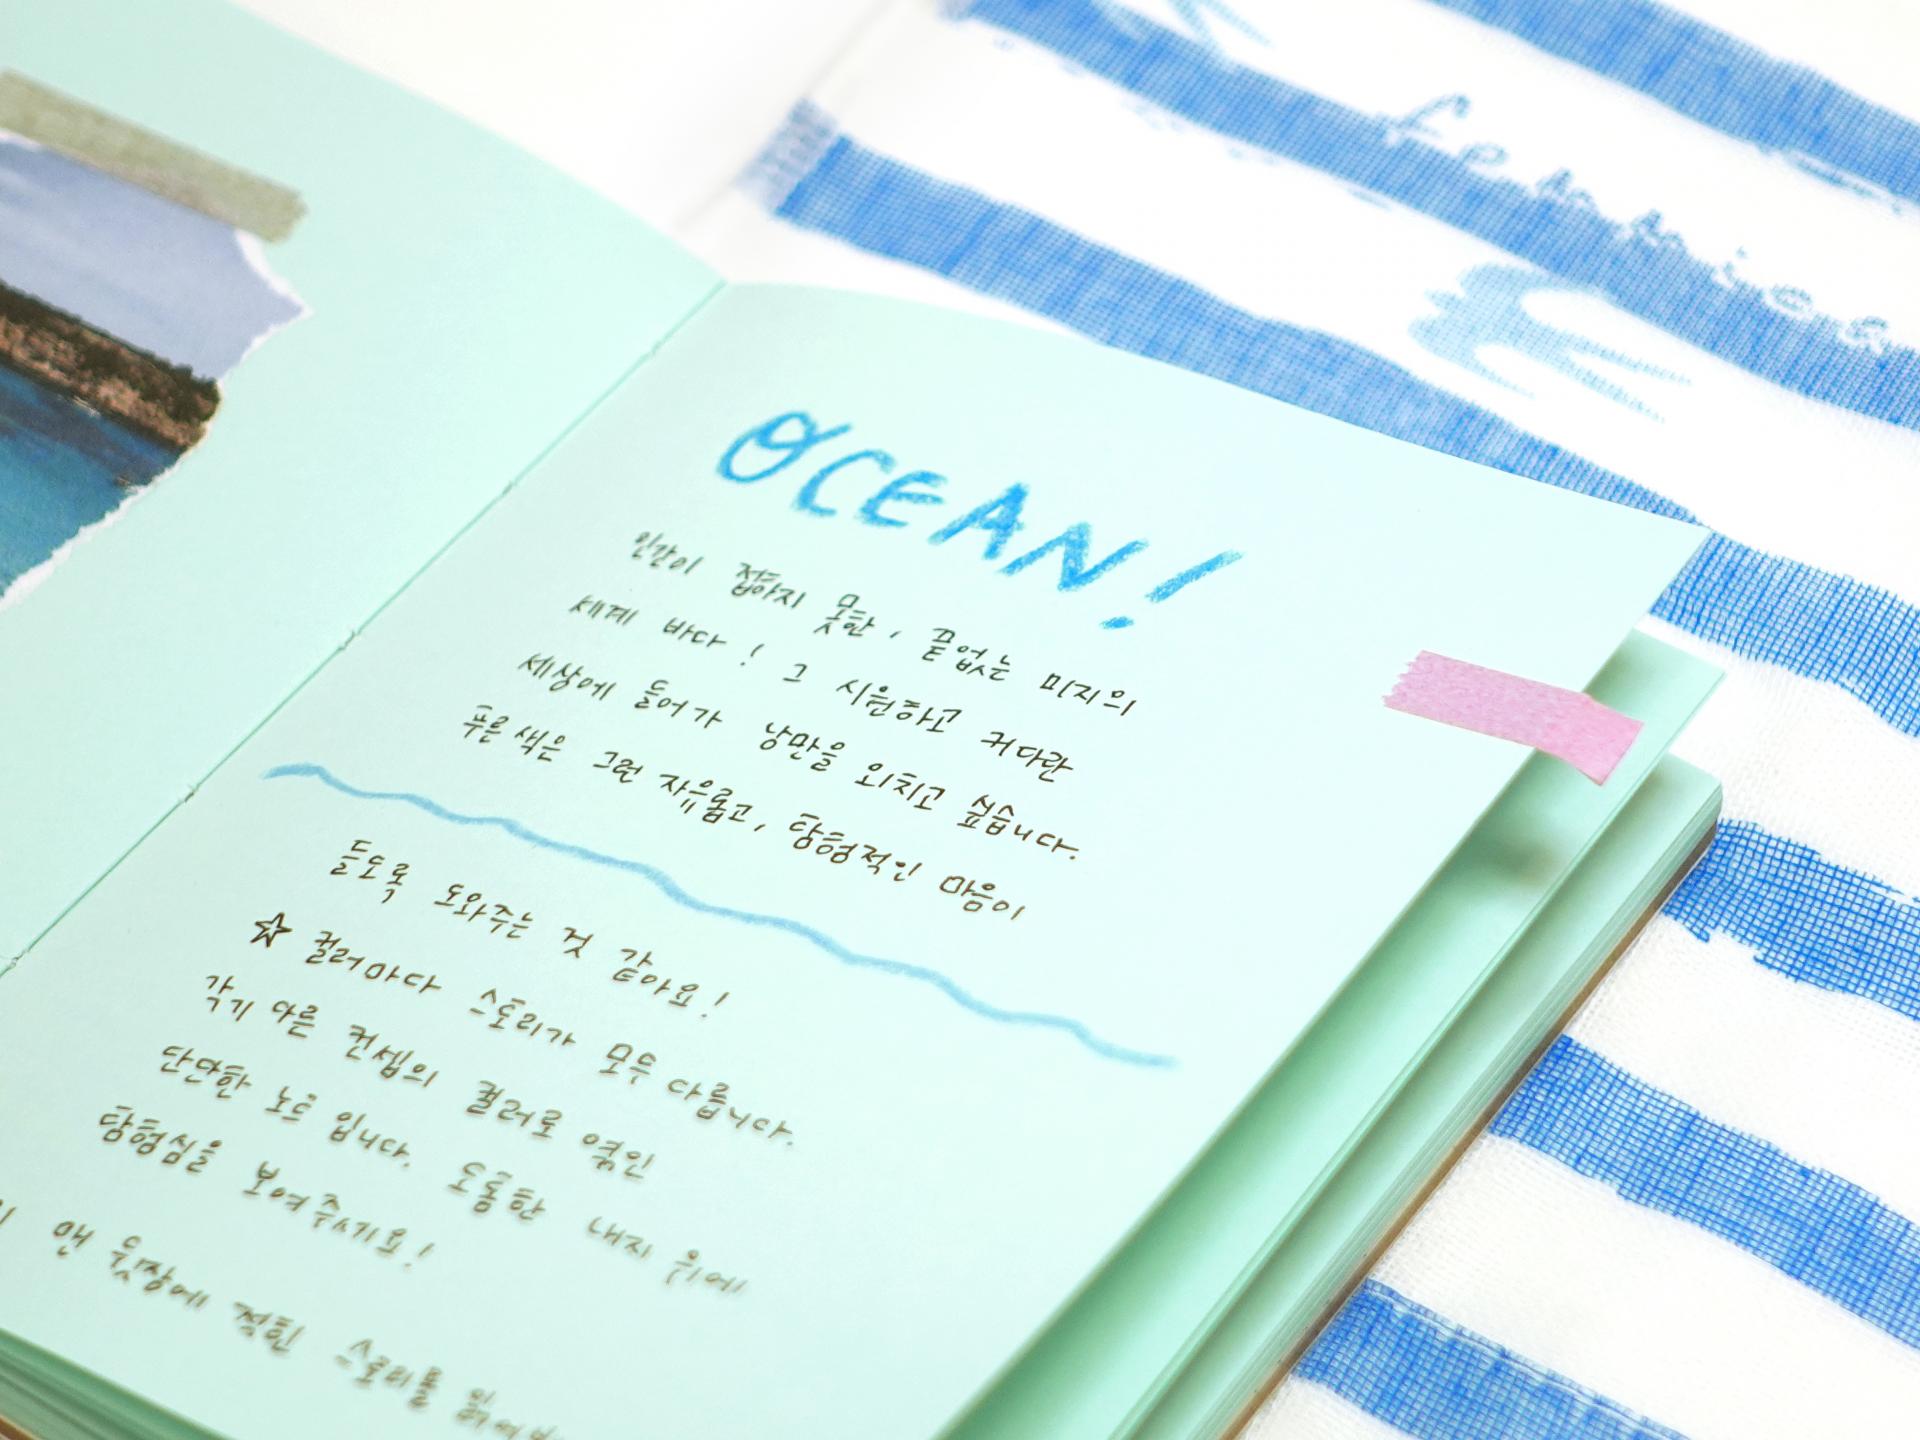 OCEAN!
인간이 접하지 못한, 끝없는 미지의
세계 바다! 그 시원하고 커다란
세상에 들어가 낭만을 외치고 싶습니다.
푸른 색은 그런 자유롭고, 탐험적인 마음이
들도록 도와주는 것 같아요!
☆ 컬러마다 스토리가 모두 다릅니다.
각기 다른 컨셉의 컬러로 엮인
단단한 노트 입니다. 도톰한 내지 위에
탐험심을 보여주시기요!
맨 윗장에 적힌 스토리를